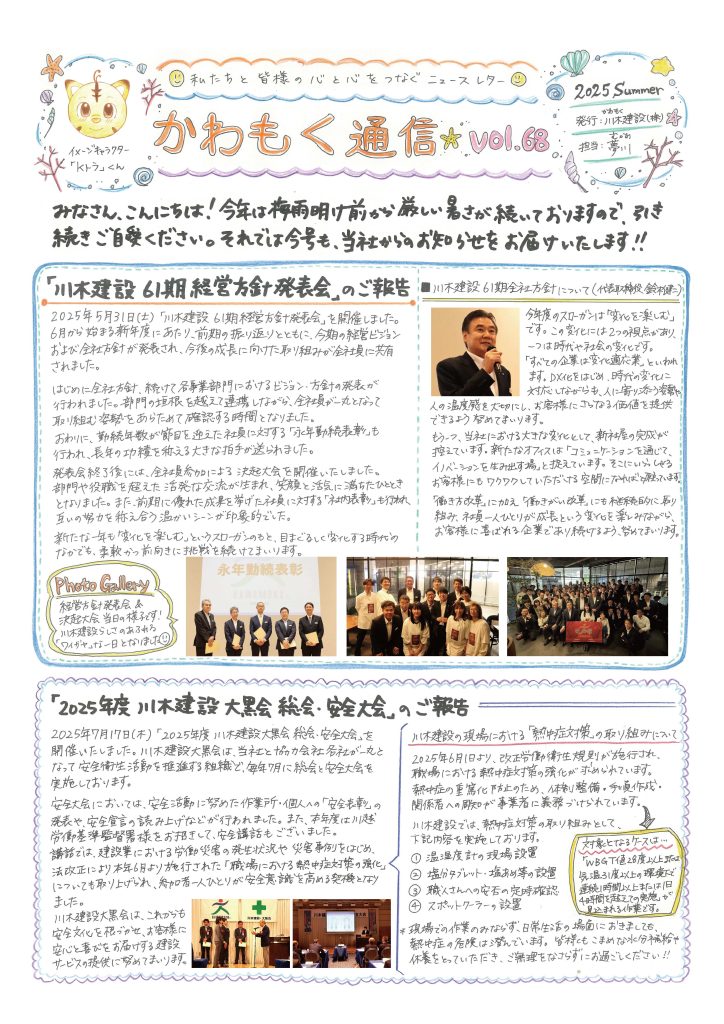 私たちと皆様の心と心をつなぐニュースレター
かわもく通信 vol.68
イメージキャラクター
「Kトラ」くん
2025 Summer
かわもく
発行:川木建設(株)
担当:夢川
みなさん、こんにちは!今年は梅雨明け前から厳しい暑さが続いておりますので、引き
続きご自愛ください。それでは今号も、当社からのお知らせをお届けいたします!!
「川木建設 61期 経営方針発表会」のご報告
2025年5月31日(土)「川木建設 61期経営方針発表会」を開催しました。
6月から始まる新年度にあたり、前期の振り返りとともに、今期の経営ビジョン
および全社方針が発表され、今後の成長に向けた取り組みが全社員に共有
されました。
はじめに全社方針、続けて各事業部門におけるビジョン・方針の発表が
行われました。部門の垣根を越えて連携しながら、全社員が一丸となって
取り組む姿勢をあらためて確認する時間となりました。
おわりに、勤続年数が節目を迎えた社員に対する「永年勤続表彰」も
行われ、長年の功績を称える大きな拍手が送られました。
発表会終了後には、全社員参加による決起大会を開催いたしました。
部門や役職を超えた活発な交流が生まれ、笑顔と活気に満ちたひととき
となりました。また、前期に優れた成果を挙げた社員に対する「社内表彰」も行われ、
互いの努力を称え合う温かいシーンが印象的でした。
新たな一年も「変化を楽しむ」というスローガンのもと、目まぐるしく変化する時代の
なかでも、柔軟かつ前向きに挑戦を続けてまいります。
Photo Gallery
経営方針発表会 &
決起大会 当日の様子です!
川木建設らしさのあふれる
「ワイガヤ」な一日となりました
永年勤続表彰
■川木建設 61期全社方針について(代表取締役 鈴木健二)
今年度のスローガンは「変化を楽しむ」
です。この変化には2つの視点があり、
一つは時代や社会の変化です。
「すべての企業は変化適応業」といわれ
ます。DX化をはじめ、時代の変化に
対応しながらも、人に寄り添う姿勢や
人の温度感を大切にし、お客様にさらなる価値を提供
できるよう努めてまいります。
もう一つ、当社における大きな変化として、新社屋の完成が
控えています。新たなオフィスは「コミュニケーションを通じて、
イノベーションを生み出す場」と捉えています。そこにいらっしゃる
お客様にもワクワクしていただける空間になればと願っています。
「働き方改革」に加え「働きがい改革」にも継続的に取り
組み、社員一人ひとりが成長という変化を楽しみながら、
お客様に喜ばれる企業であり続けるよう、努めてまいります。
「2025年度 川木建設 大黒会 総会・安全大会」のご報告
2025年7月17日(木)「2025年度 川木建設大黒会 総会・安全大会」を
開催いたしました。川木建設大黒会は、当社と協力会社各社が一丸と
なって安全衛生活動を推進する組織で、毎年7月に総会と安全大会を
実施しております。
安全大会においては、安全活動に努めた作業所・個人への「安全表彰」の
発表や、安全宣言の読み上げなどが行われました。また、本年度は川越
労働基準監督署様をお招きして、安全講話もございました。
講話では、建設業における労働災害の発生状況や災害事例をはじめ、
法改正により本年6月より施行された「職場における熱中症対策の強化」
についても取り上げられ、参加者一人ひとりが安全意識を高める契機となり
ました。
川木建設大黒会は、これからも
安全文化を根づかせ、お客様に
安心と喜びをお届けする建設
サービスの提供に努めてまいります。
川木建設の現場における「熱中症対策」の取り組みについて
2025年6月1日より、改正労働衛生規則が施行され、
職場における熱中症対策の強化が求められています。
熱中症の重篤化防止のため、体制整備・手順作成・
関係者への周知が事業者に義務づけられています。
川木建設では、熱中症対策の取り組みとして、
下記内容を実施しております。
① 温湿度計の現場設置
② 塩分タブレット・塩あめ等の設置
③ 職人さんへの安否の定時確認
④ スポットクーラーの設置
対象となるケースは…
「WBGT値28度以上または
気温31度以上の環境で
連続1時間以上または1日
4時間を超えての実施」が
見込まれる作業です。
*現場での作業のみならず、日常生活の場面におきましても、
熱中症の危険は潜んでいます。皆様もこまめな水分補給や
休養をとっていただき、ご無理をなさらずにお過ごしください!!